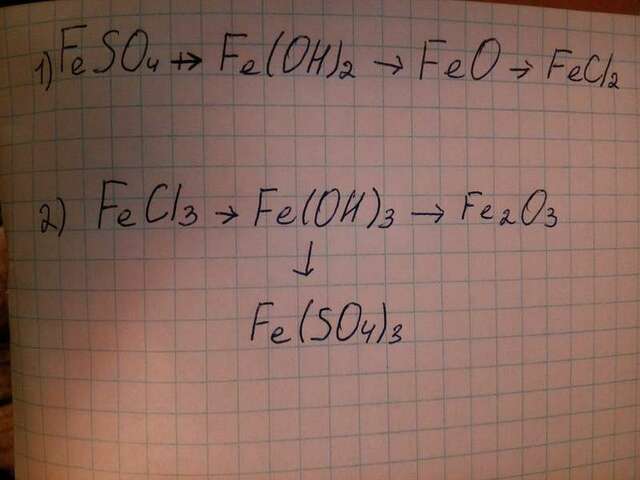 1) FeSO4 → Fe(OH)2 → FeO → FeCl2
2) FeCl3 → Fe(OH)3 → Fe2O3
↓
Fe(SO4)3